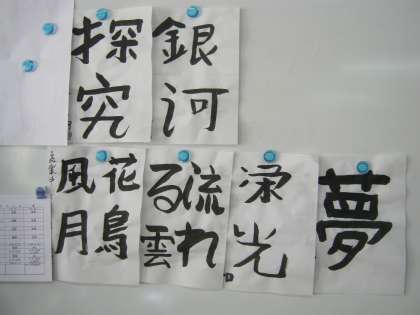 銀河
探究
夢
栄光
流れ
る雲
花鳥
風月